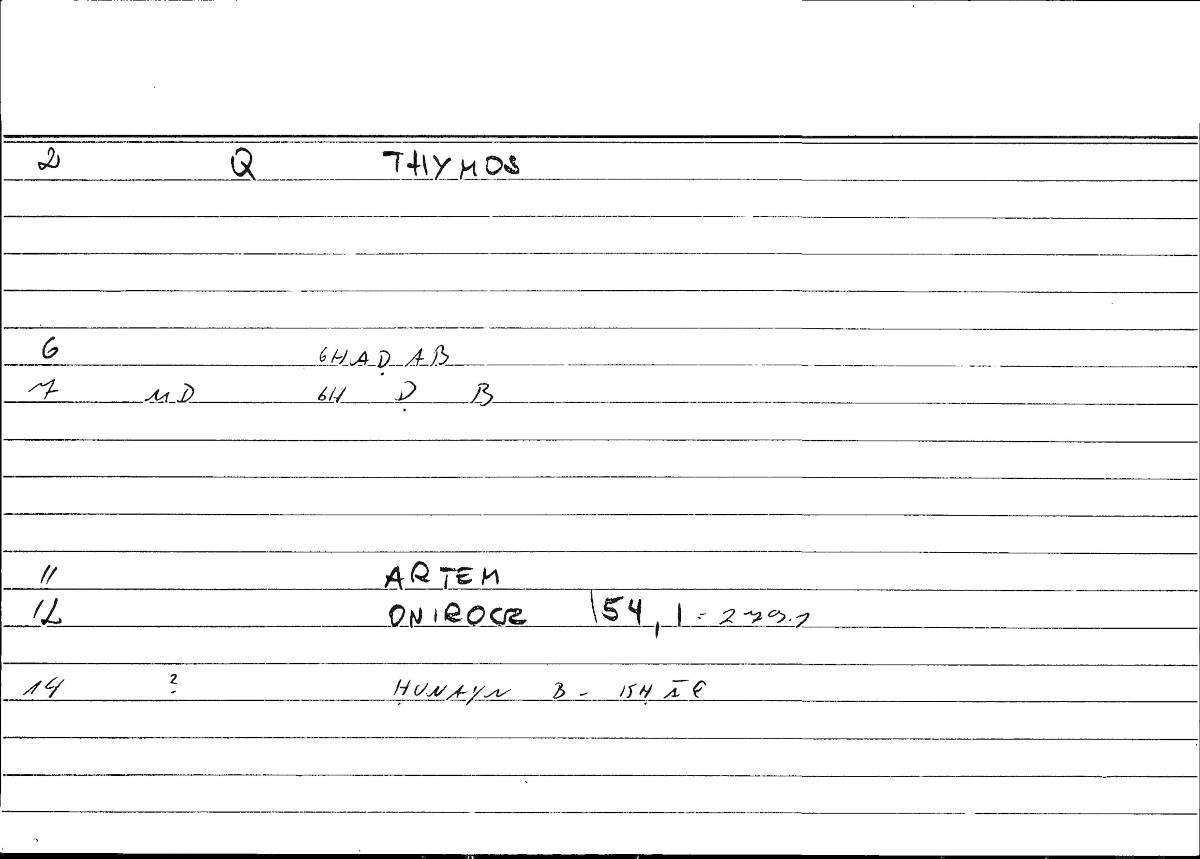 2 Q THYMOS
6 GHAḌAB
7 MD GH Ḍ B
11 ARTEM
12 ONIROCR 154,1 = 279.1
14 ? ḤUNAYN B-